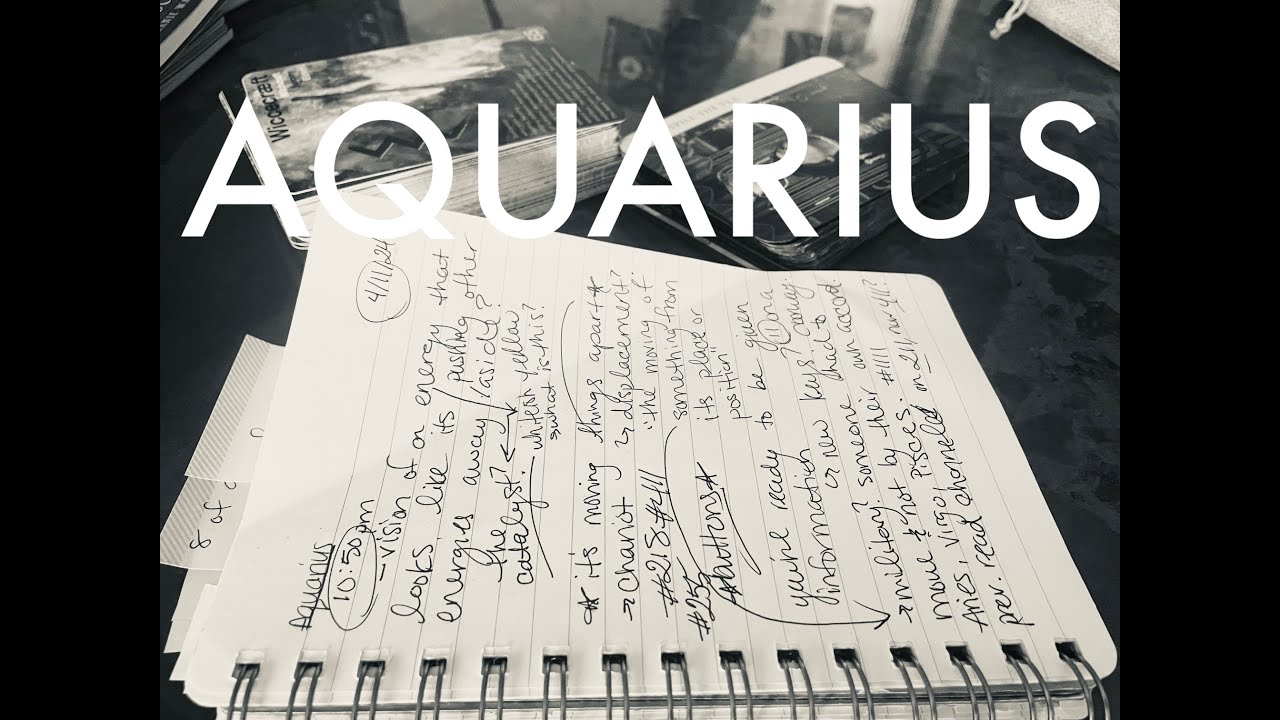 AQUARIUS
Wiccacraft
8 of
Aquarius
4/11/24
10:50pm
- vision of an energy that
looks like its pushing other
energies away/aside?
the
catalyst? whiteish yellow
what is this?
* it's moving things apart *
→ chariot ↳ displacement?
#218 #411 "the moving of
#255 something from
its place or
position"
*buttons*
you're ready to be given
information
↳ new keys?
→ military? someone had to
move & not by their own accord.
Aries, Virgo, Pisces. #1111
prev. read channeled on 2/1